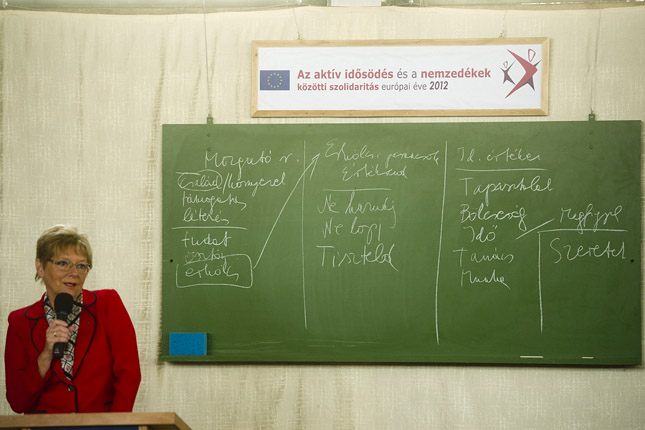 Az aktív idősödés és a nemzedékek
közötti szolidaritás európai éve 2012
Mozgató r.
Család/környezet
támogatás
létezés
tudat
ösztön
erkölcs
Erkölcsi parancsok
Értékrend
Ne hazudj
Ne lopj
Tiszteld
Id. értékei
Tapasztalat
Bölcsesség
Idő
Tanács
Munka
Szeretet